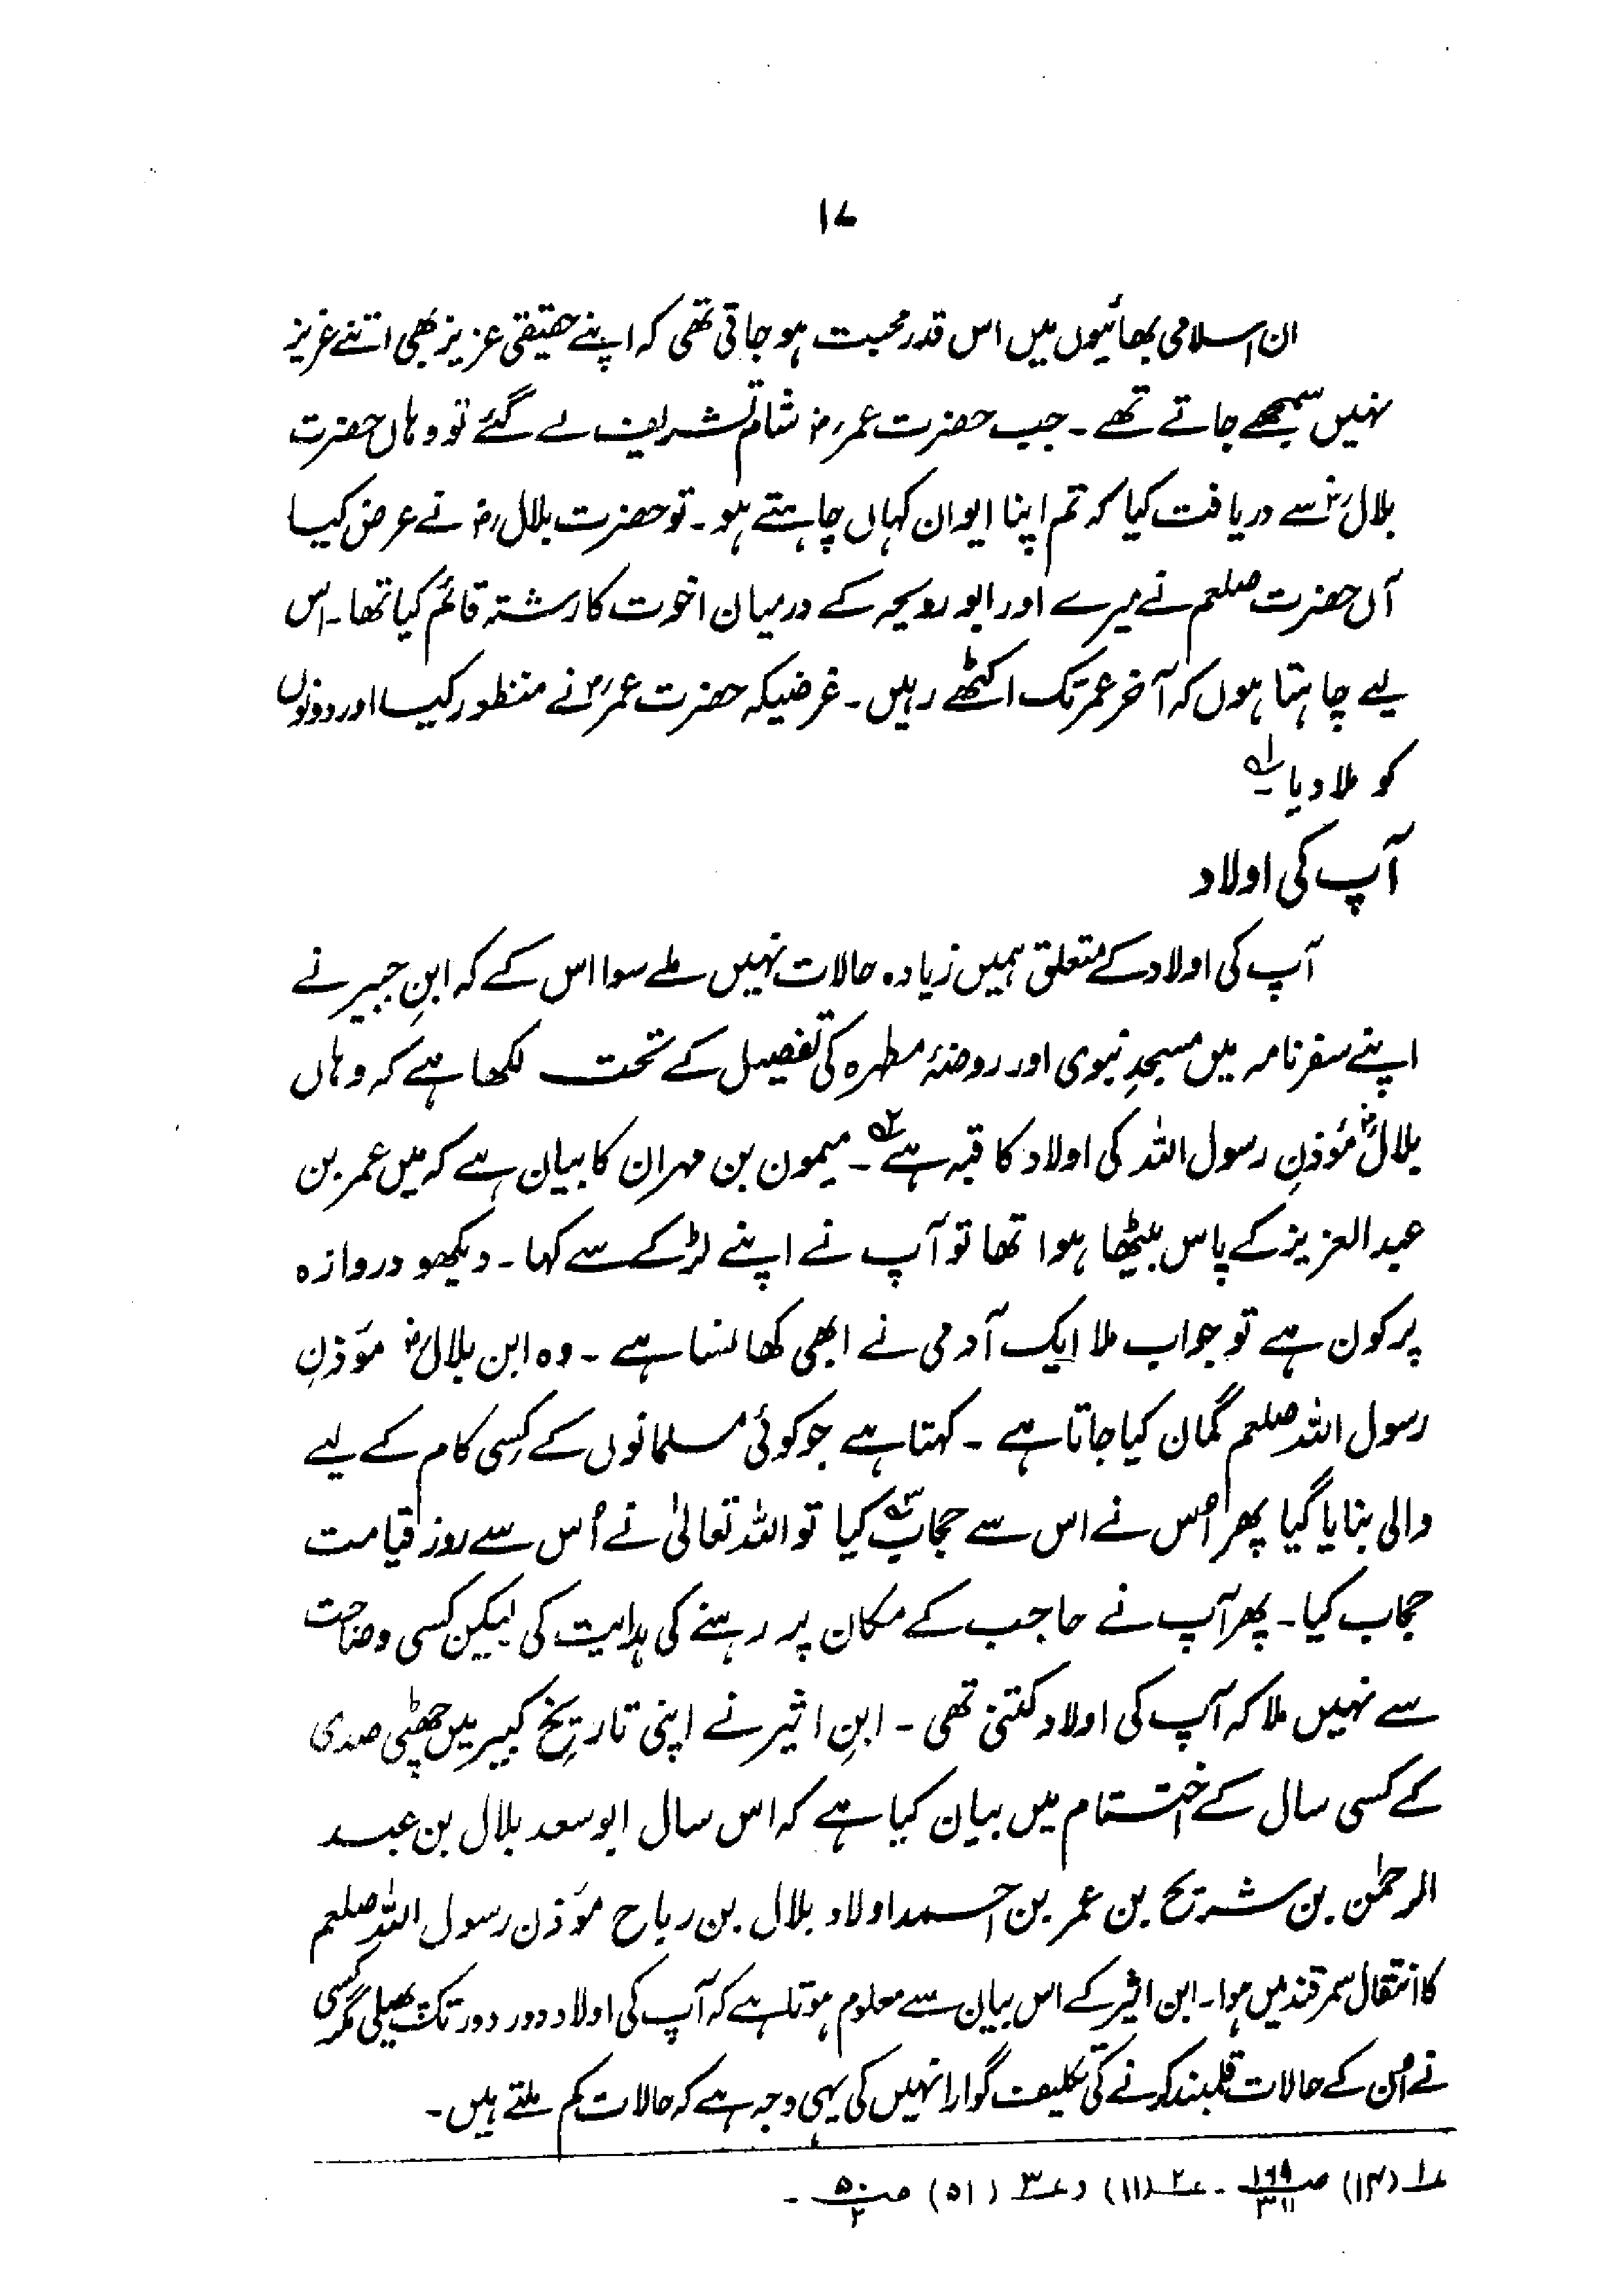 ۱۷
ان اسلامی بھائیوں میں اس قدر محبت ہو جاتی تھی کہ اپنے حقیقی عزیز بھی اتنے عزیز
نہیں سمجھے جاتے تھے ۔ جب حضرت عمرؓ شام تشریف لے گئے تو وہاں حضرت
بلالؓ سے دریافت کیا کہ تم اپنا ایوان کہاں چاہتے ہو ۔ تو حضرت بلالؓ نے عرض کیا
آں حضرت صلعم نے میرے اور ابو رویحہ کے درمیان اخوت کا رشتہ قائم کیا تھا ۔ اس
لیے چاہتا ہوں کہ آخر عمر تک اکٹھے رہیں ۔ غرضیکہ حضرت عمرؓ نے منظور کیا اور دونوں
کو ملا دیا ۔ ؎۱
آپ کی اولاد
آپ کی اولاد کے متعلق ہمیں زیادہ حالات نہیں ملے سوا اس کے کہ ابنِ جبیر نے
اپنے سفرنامہ میں مسجدِ نبوی اور روضۂ مطہرہ کی تفصیل کے تحت لکھا ہے کہ وہاں
بلالؓ مؤذنِ رسول اللہ کی اولاد کا قبہ ہے ؎۲ ۔ میمون بن مہران کا بیان ہے کہ میں عمر بن
عبد العزیز کے پاس بیٹھا ہوا تھا تو آپ نے اپنے لڑکے سے کہا ۔ دیکھو دروازہ
پر کون ہے تو جواب ملا ایک آدمی نے ابھی کھانسا ہے ۔ وہ ابن بلالؓ مؤذنِ
رسول اللہ صلعم گمان کیا جاتا ہے ۔ کہتا ہے جو کوئی مسلمانوں کے کِسی کام کے لیے
والی بنایا گیا پھر اُس نے اس سے حجاب ؎۳ کیا تو اللہ تعالیٰ نے اُس سے روز قیامت
حجاب کیا ۔ پھر آپ نے حاجب کے مکان پر رہنے کی ہدایت کی لیکن کسی وضاحت
سے نہیں ملا کہ آپ کی اولاد کتنی تھی ۔ ابنِ اثیر نے اپنی تاریخِ کبیر میں چھٹی صدی
کے کسی سال کے اختتام میں بیان کیا ہے کہ اس سال ابو سعد بلال بن عبد
الرحمٰن بن شریح بن عمر بن احمد اولاد بلال بن رباح مؤذن رسول اللہ صلعم
کا انتقال سمرقند میں ہوا ۔ ابن اثیر کے اس بیان سے معلوم ہوتا ہے کہ آپ کی اولاد دور دور تک پھیلی مگر کسی
نے اُن کے حالات قلمبند کرنے کی تکلیف گوارا نہیں کی یہی وجہ ہے کہ حالات کم ملتے ہیں ۔
؎۱ (۱۴) صـ ۱۶۹/۳ ۱۱ ۔ ؎۲ (۱۱) و ؎۳ (۵۱) صـ ۵۰/۲ ۔